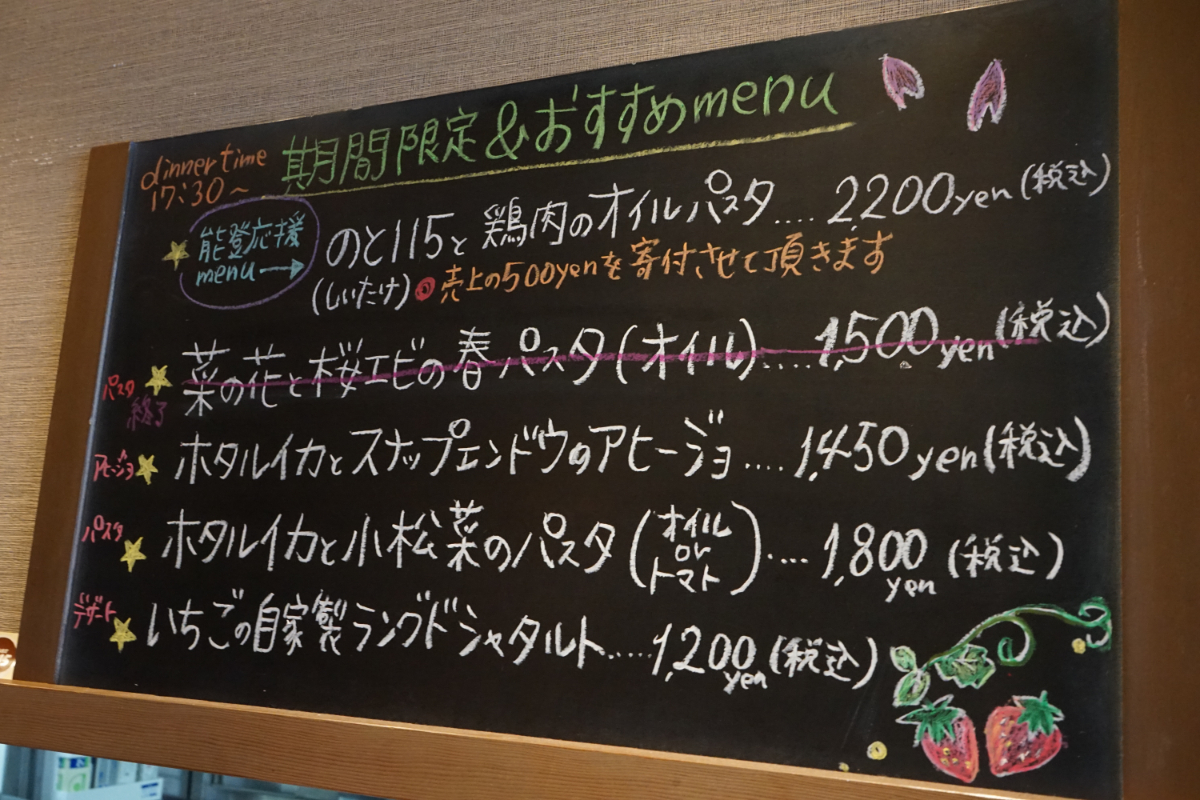 dinner time
17:30~
期間限定&おすすめmenu
能登応援
menu→
のと115と鶏肉のオイルパスタ....2,200yen(税込)
(しいたけ)
売上の500yenを寄付させて頂きます
パスタ
終了
菜の花と桜エビの春パスタ(オイル)....1,500yen(税込)
アヒージョ
ホタルイカとスナップエンドウのアヒージョ....1,450yen(税込)
パスタ
ホタルイカと小松菜のパスタ(オイル or トマト)....1,800yen(税込)
デザート
いちごの自家製ラングドシャタルト.....1,200yen(税込)